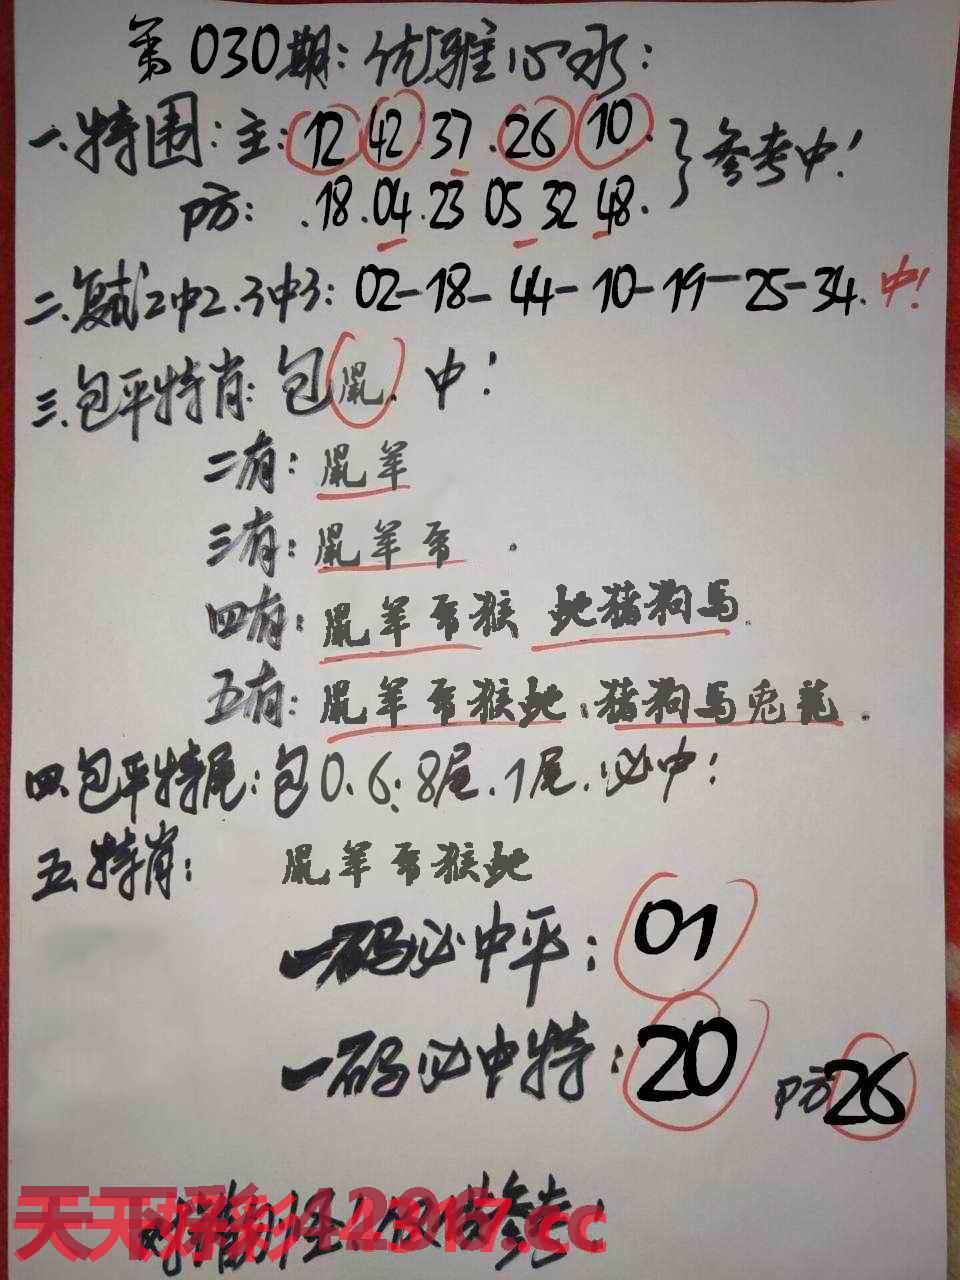 第030期：优雅心水：
一.特围：主：12 42 37.26 10. 参考中！
防：.18.04.23 05 32 48.
二.复式2中2.3中3：02-18-44-10-19-25-34.中！
三.包平特肖：包鼠.中！
二有：鼠羊
三有：鼠羊鸡.
四有：鼠羊鸡猴 蛇猪狗马.
五有：鼠羊鸡猴蛇：猪狗马兔龙.
四.包平特尾：包0.6.8尾.1尾.必中！
五.特肖：鼠羊鸡猴蛇
一码必中平：01
一码必中特：20 防26
天下彩 12317.cc